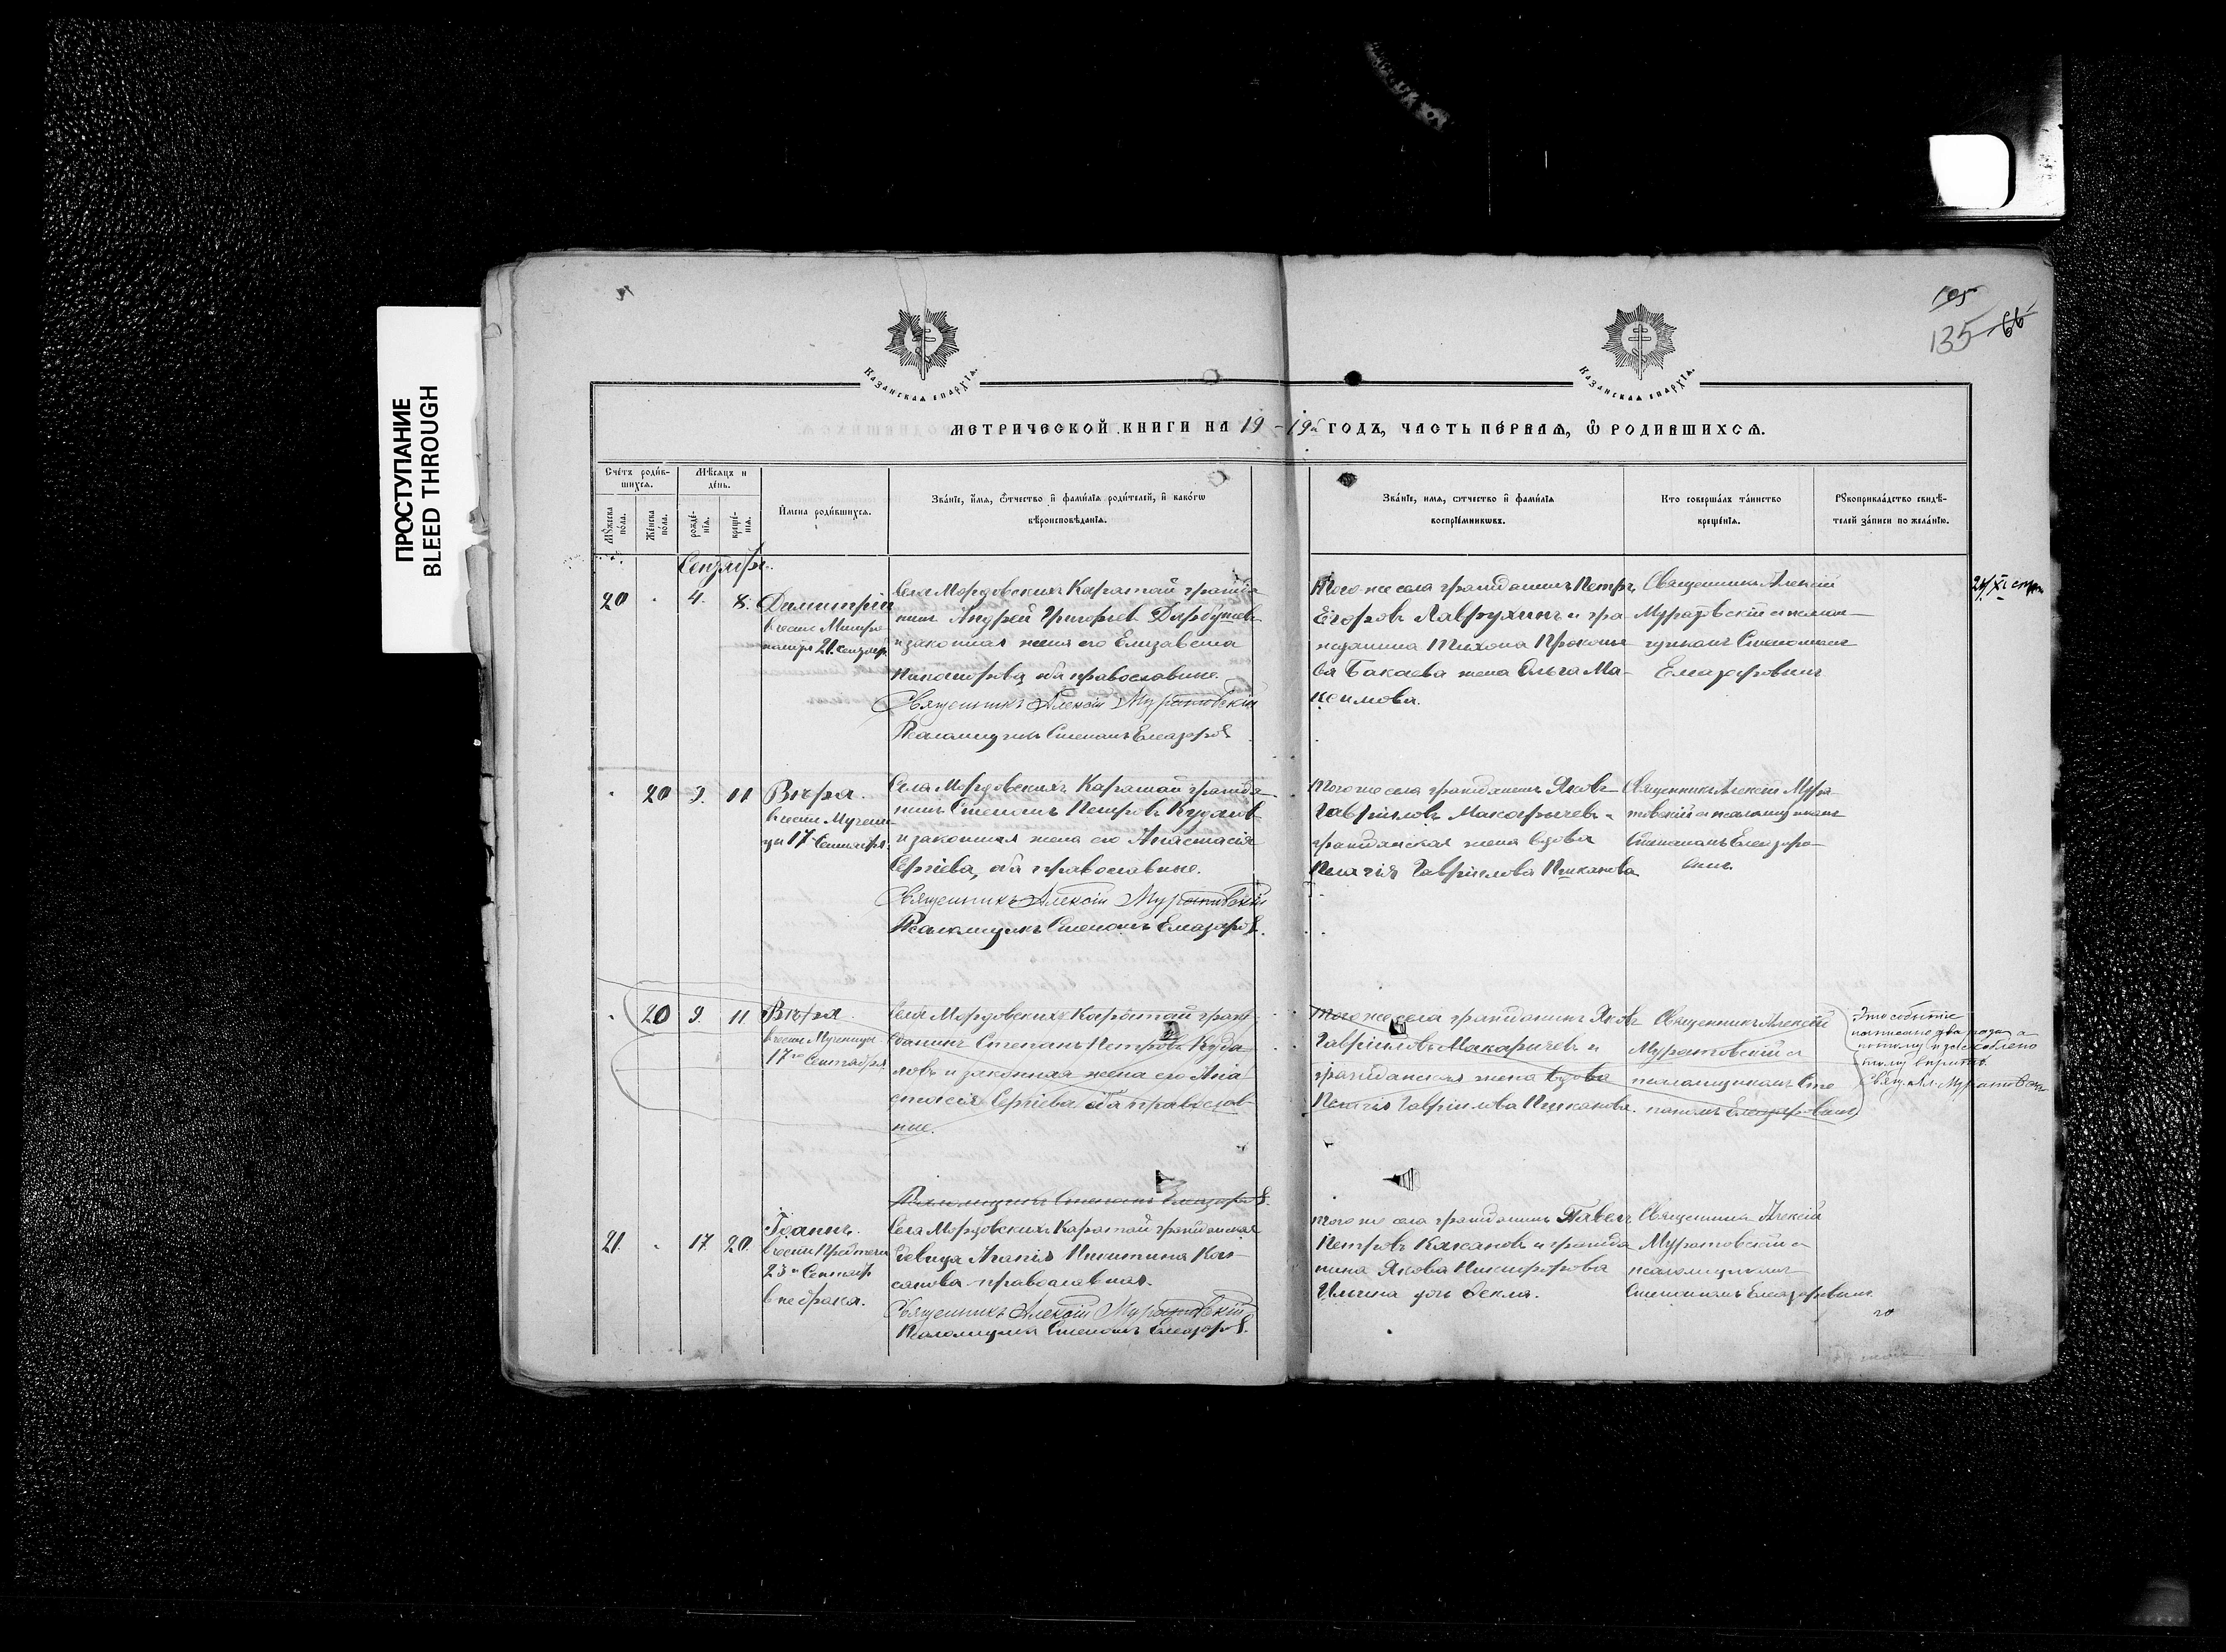 ПРОСТУПАНИЕ
BLEED THROUGH
105
135 66
КАЗАНСКАЯ ЕПАРХІЯ.
КАЗАНСКАЯ ЕПАРХІЯ.
МЕТРИЧЕСКОЙ КНИГИ НА 1919й ГОДЪ, ЧАСТЬ ПЕРВАЯ, Ѡ РОДИВШИХСЯ.
Счетъ родив-
шихся.
Мѣсяцъ и
день.
Мужеска
пола.
Женска
пола.
рожде-
нія.
креще-
нія.
Имена родившихся.
Званіе, имя, отчество и фамилія родителей, и какогѡ
вѣроисповѣданія.
Званіе, имя, отчество и фамилія
воспріемникѡвъ.
Кто совершалъ таинство
крещенія.
Рукоприкладство свидѣ-
телей записи по желанію.
Сентябрь.
20 4. 8. Димитрій
21 Сентяб.
Села Мордовскихъ Каратай гражда
нинъ Андрей Григорьевъ
и законная жена его Елизавета
Никифорова, оба православные.
Священникъ Алексій Муратовскій
Псаломщикъ Степанъ Елеазаровъ
Того же села гражданинъ Петръ
Егоровъ Лаврухинъ и гра
жданина Тихона Прокопье
ва Бакаева жена Ольга Ма-
ксимова.
Священникъ Алексій
Муратовскій съ псалом-
щикомъ Степаномъ
Елеазаровымъ
20 9. 11 Вѣра.
въ честь Мучени-
цы 17 Сентября.
Села Мордовскихъ Каратай гражда-
нинъ Степанъ Петровъ Кудаловъ
и законная жена его Анастасія
Сергіева, оба православные.
Священникъ Алексій Муратовскій
Псаломщикъ Степанъ Елеазаровъ.
Того же села гражданинъ Яковъ
Гавріиловъ Макарычевъ и
гражданская жена вдова
Пелагія Гавріилова Пиканова
Священникъ Алексій Мура-
товскій съ псаломщикомъ
Степаномъ Елеазаро-
вымъ.
20 9. 11 Вѣра
въ честь Мученицы
17го Сентября
Села Мордовскихъ Каратай граж
данинъ Степанъ Петровъ Куда
ловъ и законная жена его Ана
стасія Сергіева оба православ-
ные.
Псаломщикъ Степанъ Елеазаровъ.
Того же села гражданинъ Яковъ
Гавріиловъ Макарычевъ и
гражданская жена вдова
Пелагія Гавріилова Пиканова.
Священникъ Алексій
Муратовскій съ
псаломщикомъ Сте
паномъ Елеазаровымъ
Это событіе
написано два раза, а
потому
Свящ. Ал. Муратовскій
21. 17. 20. Іоаннъ.
въ честь Предтечи
23го Сентябр
внѣ брака.
Села Мордовскихъ Каратай гражданская
девица Агапія Никитина
православная.
Священникъ Алексій Муратовскій
Псаломщикъ Степанъ Елеазаровъ.
Того же села гражданинъ Павелъ
Петровъ и гражда
нина Якова Никифорова
Ильина дочь Ѳекла.
Священникъ Алексій
Муратовскій съ
псаломщикомъ
Степаномъ Елеазаровымъ.